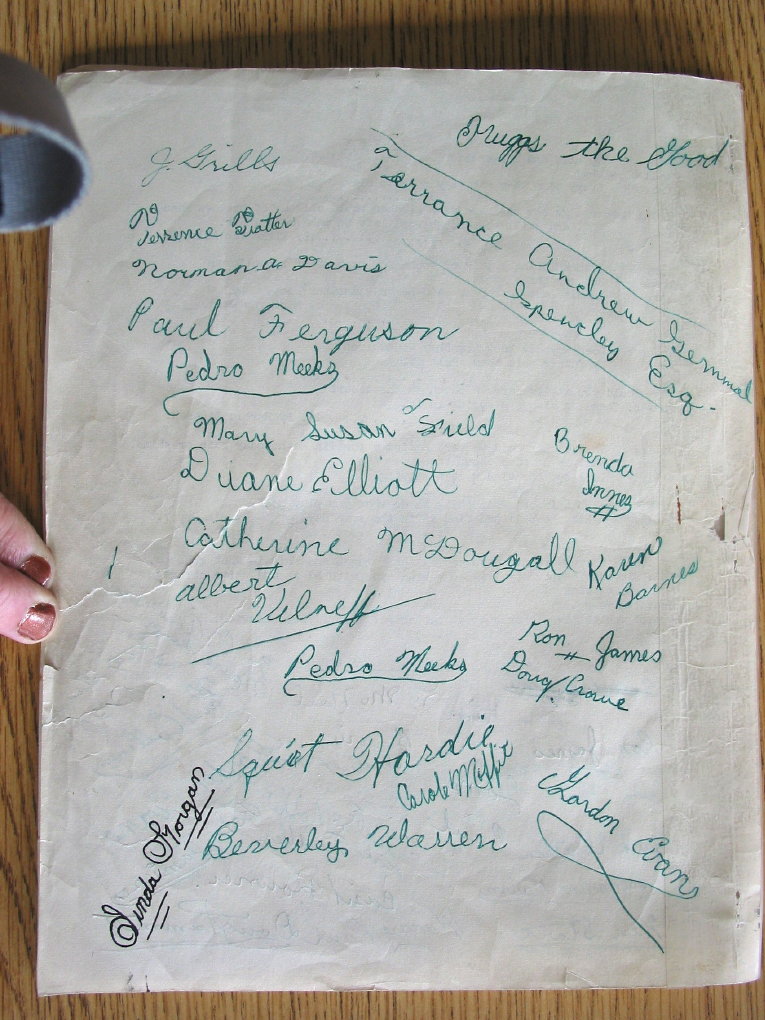 Truggs the Good
J. Grills
Terrance Andrew Gemmal
Spencley Esq.
Terrence
Norman A. Davis
Paul Ferguson
Pedro Meeks
Mary Susan Field
Duane Elliott
Brenda
Innes
Catherine McDougall
Karen
Barnes
albert
Pedro Meeks
Ron James
Doug Crowe
Squirt Hardie
Carole Moffit
Gordon Evans
Beverley Warren
Linda Morgan